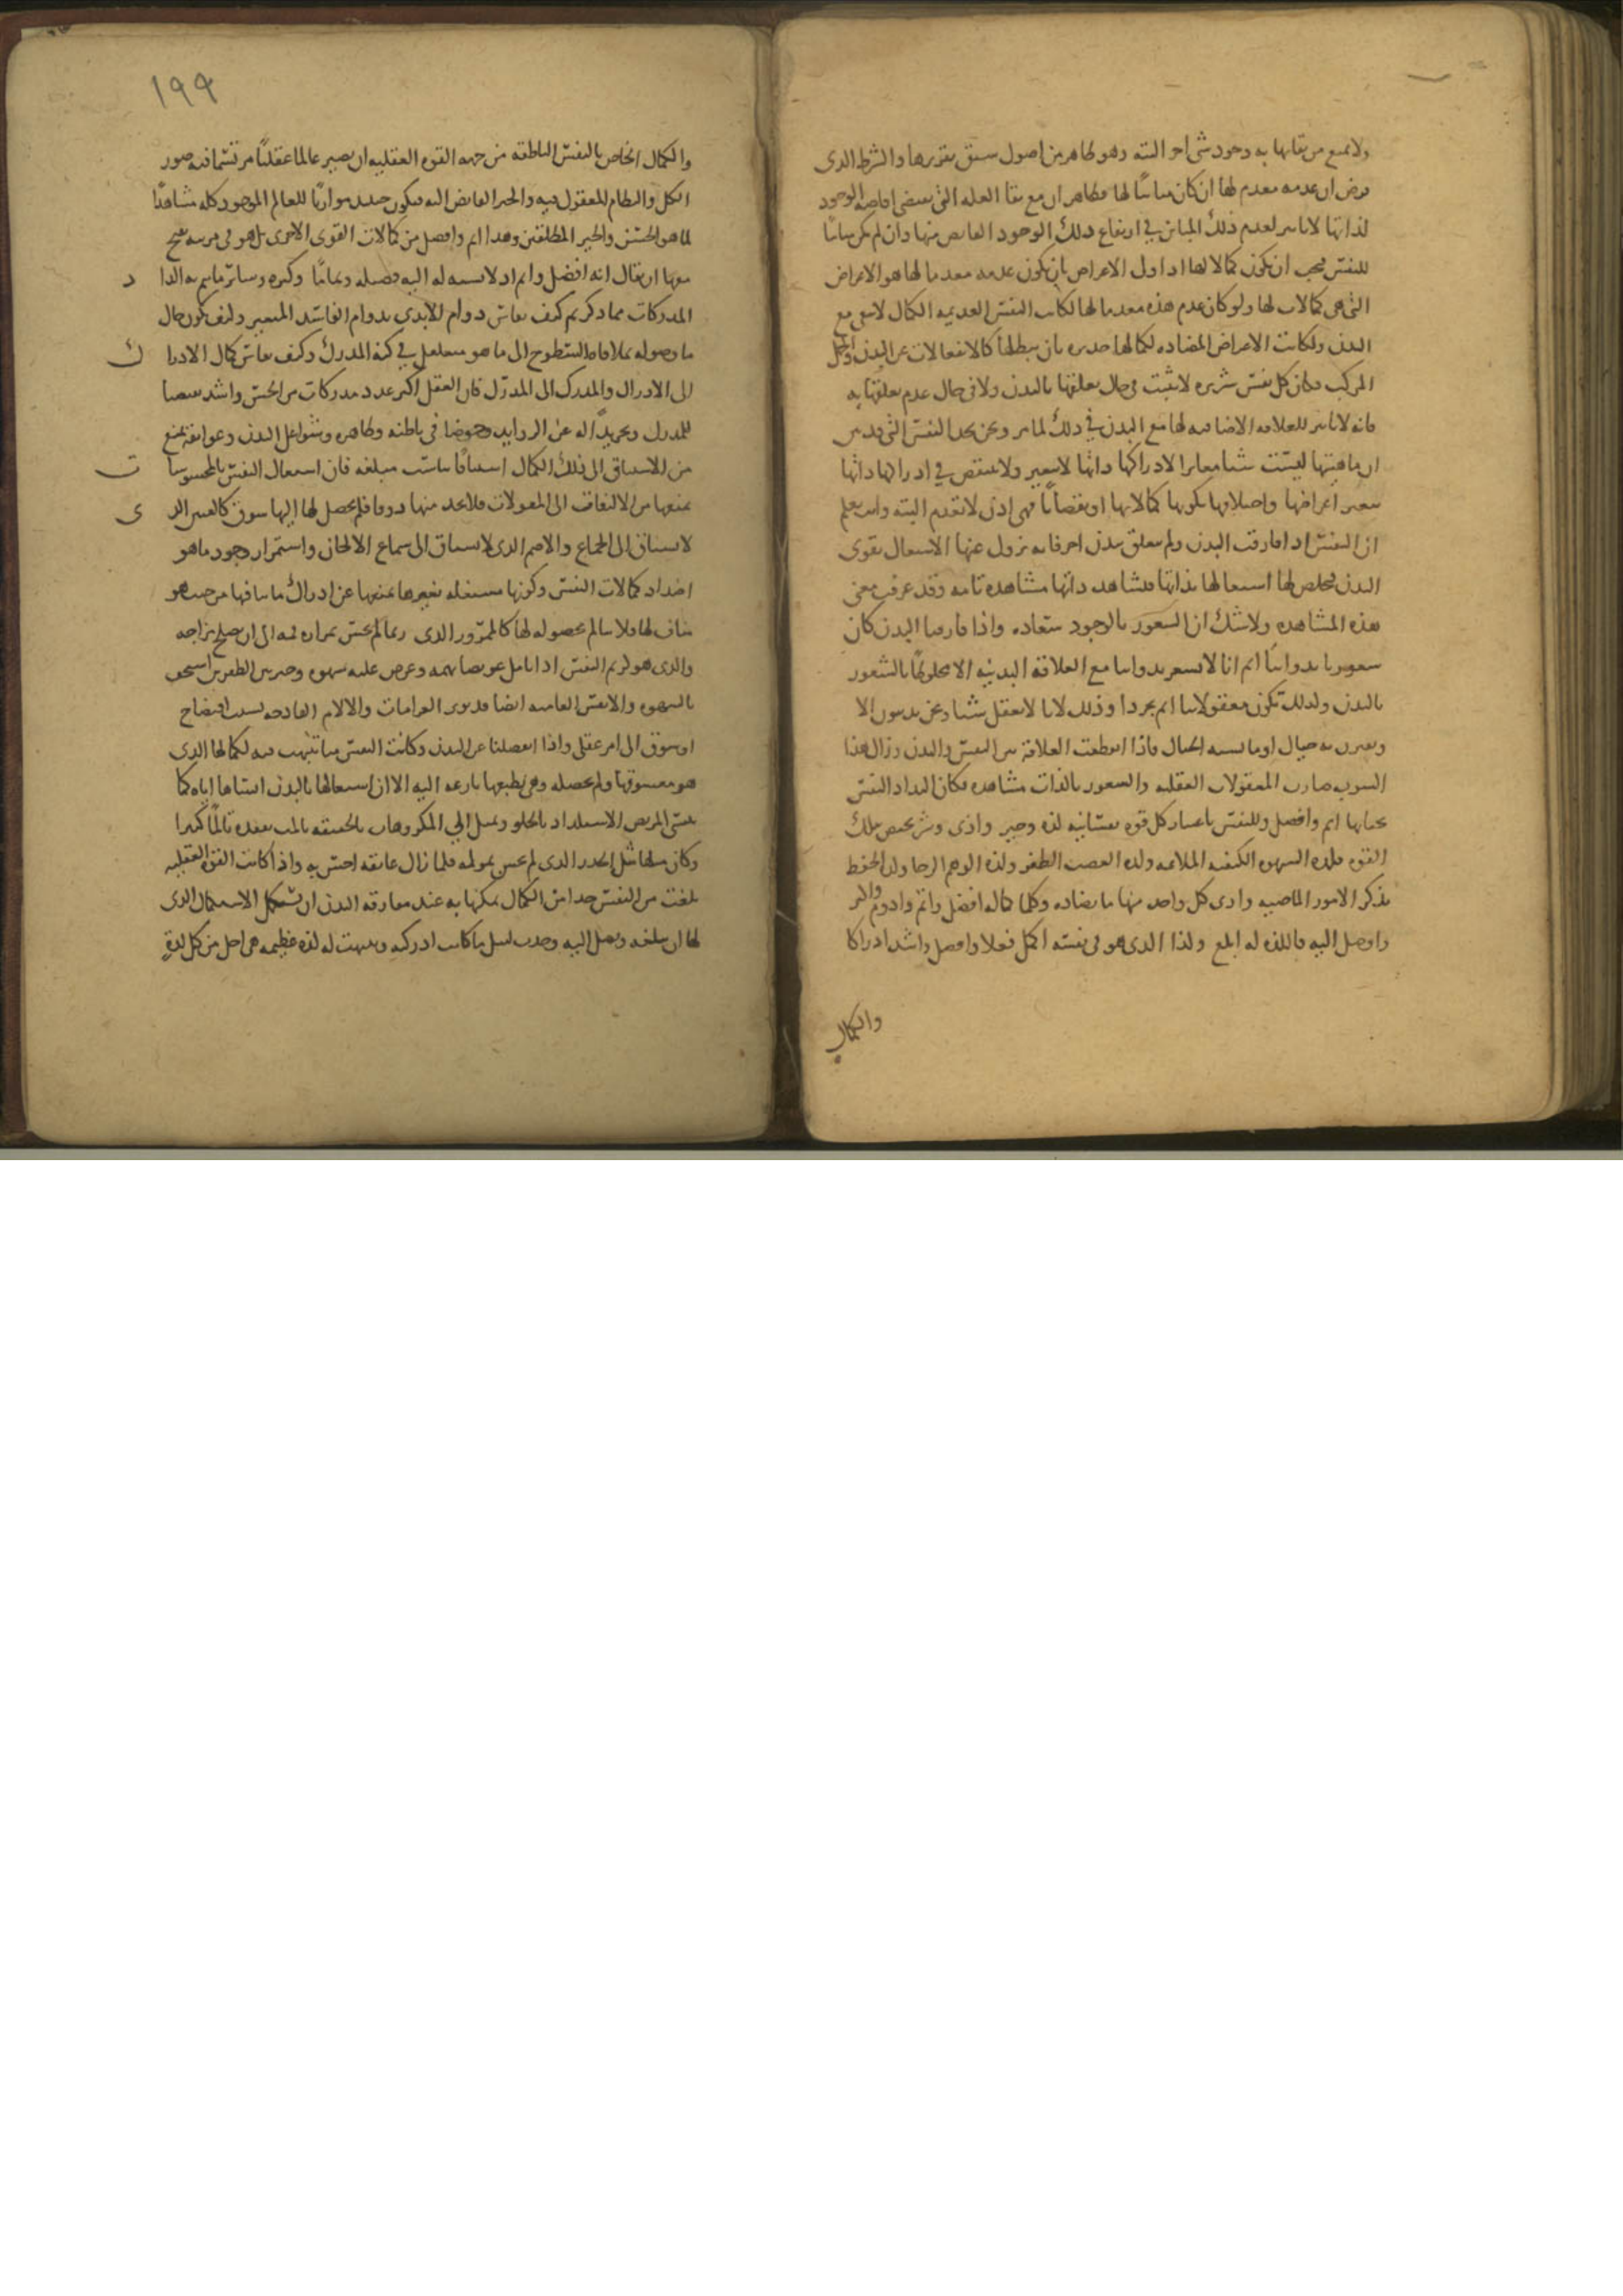 ولا يمنع من بقائها به وجود شئ اخر البته وهو ظاهر من اصول سبق تقريرها والشرط الذى
فرض ان عدمه معدم لها ان كان مباينا لها فظاهر ان مع بقا العله التى تقتضى افاضه الوجود
لذاتها لا تاثير لعدم ذلك المباين في ارتفاع ذلك الوجود الفايض منها وان لم يكن مباينا
للنفس فيجب ان يكون كمالا لها اذ اولى الاعراض بان يكون عدمه معدما لها هو الاعراض
التى هى كمالات لها ولو كان عدم هذه معدما لها لكانت النفس العديمه الكمال لا تبقى مع
البدن ولكانت الاعراض المضاده لكمالها جديره بان تبطلها كالانفعالات عن البدن والجهل
المركب فكان كل نفس شريره لا تثبت فى حال تعلقها بالبدن ولا فى حال عدم تعلقها به
فانه لا تاثير للعلاقه الاضافيه لها مع البدن في ذلك لما مر ونحن نجد النفس التى قد تبين
ان ماهيتها ليست شيا مغايرا لادراكها ذاتها لا تتغير ولا تنتقص في ادراكها ذاتها
بتغير اعراضها واختلافها بكونها كمالا لها او نقصانا فهى اذن لا تنعدم البته وانت تعلم
ان النفس اذا فارقت البدن ولم تتعلق ببدن اخر فانه يزول عنها الاشتغال بقوى
البدن فيخلص لها اشتغالها بذاتها فتشاهد ذاتها مشاهدة تامه وقد عرفت معنى
هذه المشاهده ولا شك ان الشعور بالوجود سعاده واذا فارقنا البدن كان
شعورنا بذواتنا اتم لانا لا نشعر بذواتنا مع العلاقة البدنيه الا مخلوطا بالشعور
بالبدن ولذلك تكون معقولاتنا اتم تجردا وذلك لانا لا نعقل شيا ونحن بدنيون الا
ويقترن به خيال او ما يشبه الخيال فاذا انقطعت العلاقة بين النفس والبدن وزال هذا
الشوب صارت المعقولات العقليه والشعور بالذات مشاهده فكان التذاذ النفس
بحياتها اتم وافضل وللنفس باعتبار كل قوه نفسانيه لذه وخير واذى وشر يختص بتلك
القوه فلذه الشهوه الكيفيه الملائمه ولذه الغضب الظفر ولذه الوهم الرجا ولذه الحفظ
تذكر الامور الماضيه واذى كل واحد منها ما يضاده وكلما كماله افضل واتم وادوم واكثر
واوصل اليه فاللذه له ابلغ وكذا الذى هو فى نفسه اكمل فعلا وافضل واشد ادراكا
والكمال
١٩٩
والكمال الخاص بالنفس الناطقه من جهه القوه العقليه ان يصير عالما عقليا مرتسما فيه صور
الكل والنظام المعقول فيه والخير الفايض اليه فيكون حينئذ موازيا للعالم الموجود كله مشاهدا
لما هو الحسن والخير المطلقين وهذا اتم وافضل من كمالات القوى الاخرى بل هو فى مرتبه يقبح
معها ان يقال انه افضل واتم اذ لا نسبه له اليه فضيله وتماما وكثره وسائر ما يتم به التذاذ
المدركات مما ذكر ثم كيف يقاس دوام الابدى بدوام الفاسد المتغير وكيف يكون حال
ما وصوله بملاقاه السطوح الى ما هو متغلغل في كنه المدرك وكيف يقاس كمال الادراك
الى الادراك والمدرك الى المدرك فان العقل اكثر عدد مدركات من الحس واشد تقصيا
للمدرك وتجريدا له عن الزوايد وخوضا فى باطنه وظاهره وشواغل البدن وعوايقه تمنع
من الاشتياق الى ذلك الكمال اشتياقا يناسب مبلغه فان اشتغال النفس بالمحسوسات
يمنعها من الالتفات الى المعقولات فلا تجد منها ذوقا فلم يحصل لها اليها شوق كالعنين الذى
لا يشتاق الى الجماع والاصم الذى لا يشتاق الى سماع الالحان واستمرار وجود ما هو
اضداد كمالات النفس وكونها مشتغله بغيرها يمنعها عن ادراك ما ينافيها من حيث هو
مناف لها فلا تتالم بحصوله لها كالممرور الذى ربما لم يحس بمراره فمه الى ان يصلح مزاجه
والذى هو كريم النفس اذا تامل عويصا يهمه وعرض عليه شهوه وخير بين الطفرين استخف
بالشهوه والانفس العاميه ايضا قد تؤثر الغرامات والالام الفادحه بسبب افتضاح
او شوق الى امر عقلى واذا انفصلنا عن البدن وكانت النفس منا تنبهت فيه لكمالها الذى
هو معشوقها ولم تحصله وهى بطبعها نازعه اليه الا ان اشتغالها بالبدن انساها اياه كما
ينسى المريض الاستلذاذ بالحلو ويميل الى المكروهات بالحقيقه تالمت بفقده تالما كثيرا
وكان مثلها مثل الخدر الذى لم يحس بمؤلمه فلما زال عايقه احس به واذا كانت القوه العقليه
بلغت من النفس حدا من الكمال يمكنها به عند مفارقه البدن ان تستكمل الاستكمال الذى
لها ان تبلغه وتصل اليه وجدت لنيل ما كانت ادركته وتنبهت له لذه عظيمه هى اجل من كل لذة